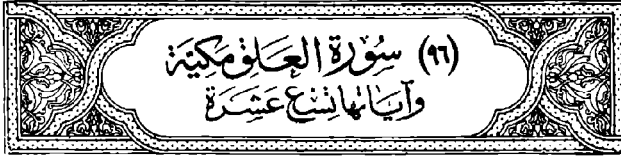 (٩٦) سُورَة العَلق مَكيّة
وَآيَاتها تِسْع عَشَرَة